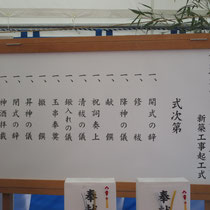 新築工事起工式
式次第
一、開式の辞
一、修祓
一、降神の儀
一、献饌
一、祝詞奏上
一、清祓の儀
一、鍬入れの儀
一、玉串奉奠
一、撤饌
一、昇神の儀
一、閉式の辞
一、神酒拝戴
奉献
奉献